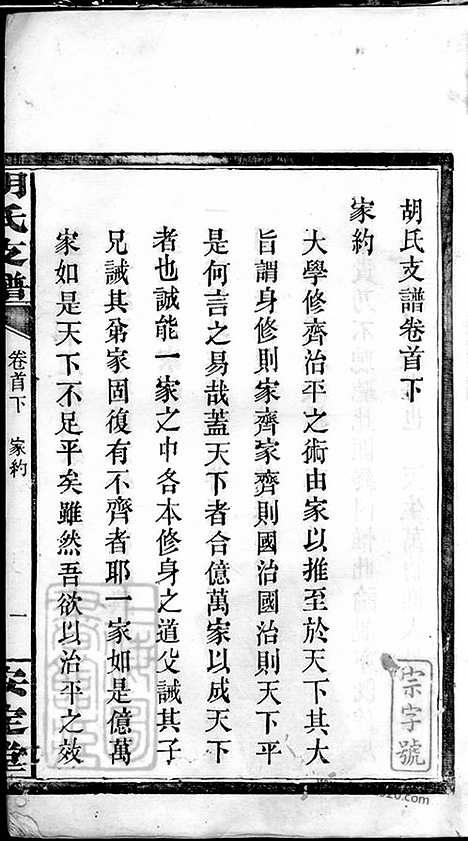 胡氏支譜卷首下
家約
大學修齊治平之術由家以推至於天下其大
旨謂身修則家齊家齊則國治國治則天下平
是何言之易哉蓋天下者合億萬家以成天下
者也誠能一家之中各本修身之道父誡其子
兄誡其弟家固復有不齊者耶一家如是億萬
家如是天下不足平矣雖然吾欲以治平之效
胡氏支譜
卷首下
家約
一
安定堂
宗字號